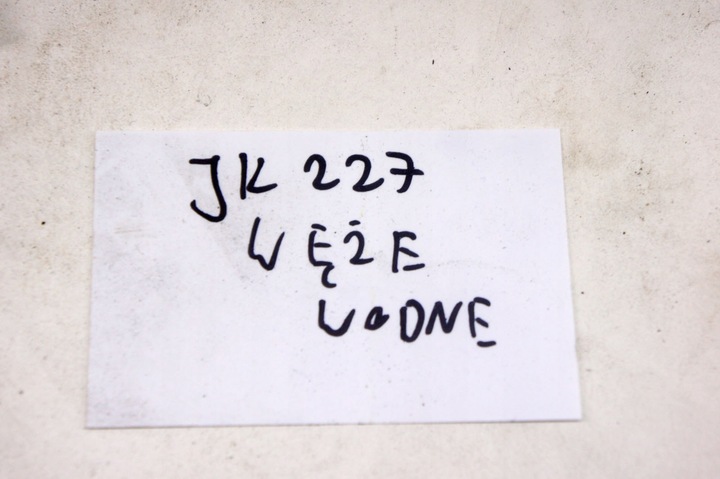 JK 227
WĘŻE
WODNE